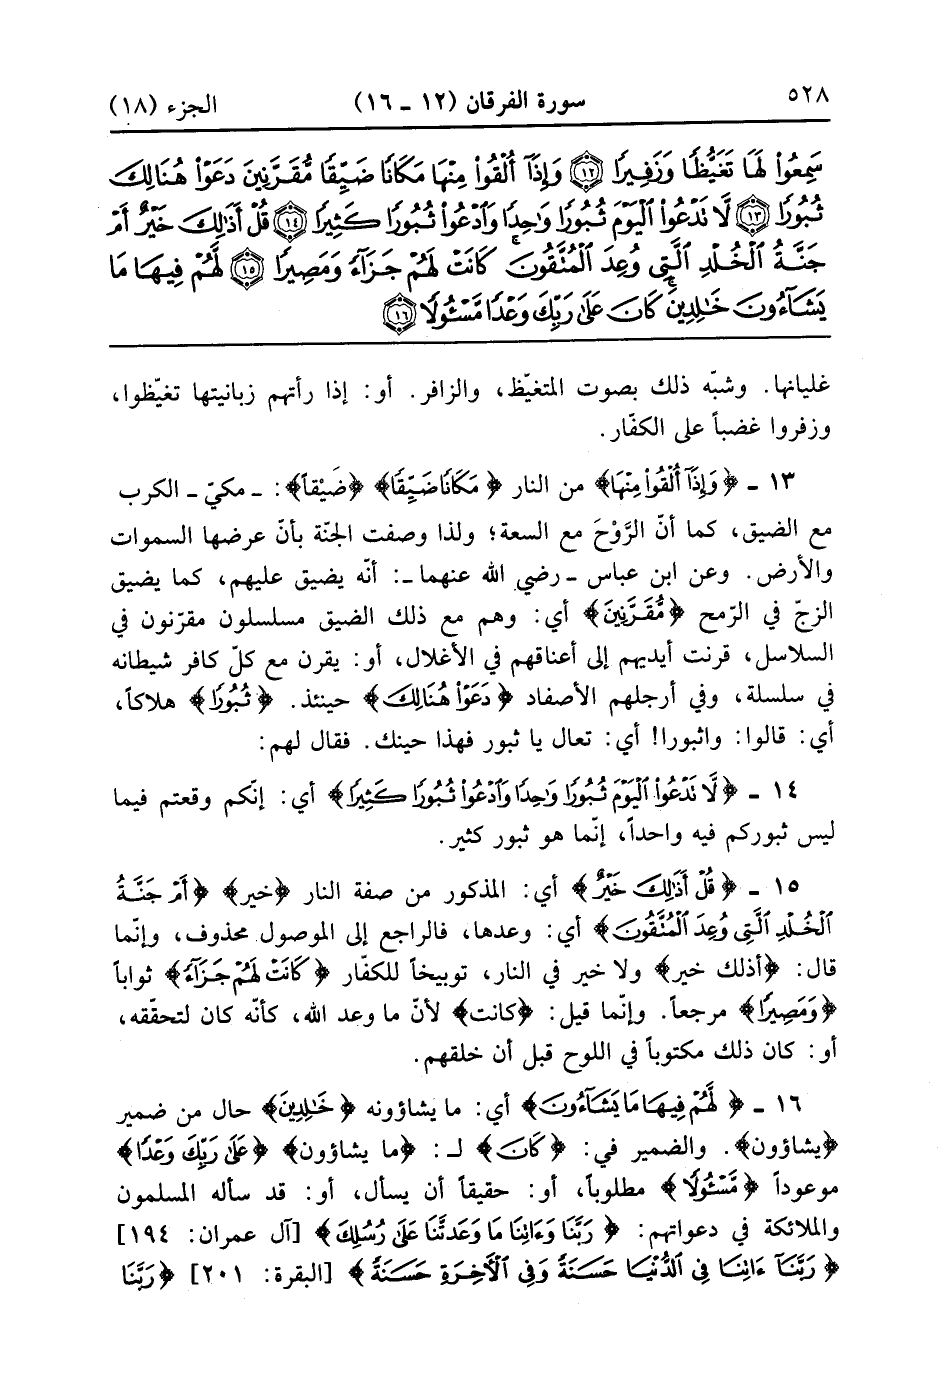 ٥٢٨ سورة الفرقان (١٢ ـ ١٦) الجزء (١٨)
سَمِعُوا۟ لَهَا تَغَيُّظًا وَزَفِيرًا ﴿١٢﴾ وَإِذَآ أُلْقُوا۟ مِنْهَا مَكَانًا ضَيِّقًا مُّقَرَّنِينَ دَعَوْا۟ هُنَالِكَ
ثُبُورًا ﴿١٣﴾ لَّا تَدْعُوا۟ ٱلْيَوْمَ ثُبُورًا وَٰحِدًا وَٱدْعُوا۟ ثُبُورًا كَثِيرًا ﴿١٤﴾ قُلْ أَذَٰلِكَ خَيْرٌ أَمْ
جَنَّةُ ٱلْخُلْدِ ٱلَّتِى وُعِدَ ٱلْمُتَّقُونَ ۚ كَانَتْ لَهُمْ جَزَآءً وَمَصِيرًا ﴿١٥﴾ لَّهُمْ فِيهَا مَا
يَشَآءُونَ خَٰلِدِينَ ۚ كَانَ عَلَىٰ رَبِّكَ وَعْدًا مَّسْـُٔولًا ﴿١٦﴾
غليانها. وشبّه ذلك بصوت المتغيّظ، والزافر. أو: إذا رأتهم زبانيتها تغيّظوا،
وزفروا غضباً على الكفّار.
١٣ ـ ﴿وَإِذَآ أُلْقُوا۟ مِنْهَا﴾ من النار ﴿مَكَانًا ضَيِّقًا﴾ ﴿ضَيْقاً﴾: ـ مكيّ ـ الكرب
مع الضيق، كما أنّ الرَّوْحَ مع السعة؛ ولذا وصفت الجنّة بأنّ عرضها السموات
والأرض. وعن ابن عباس ـ رضي الله عنهما ـ: أنّه يضيق عليهم، كما يضيق
الزجّ في الرّمح ﴿مُّقَرَّنِينَ﴾ أي: وهم مع ذلك الضيق مسلسلون مقرّنون في
السلاسل، قرنت أيديهم إلى أعناقهم في الأغلال، أو: يقرن مع كلّ كافر شيطانه
في سلسلة، وفي أرجلهم الأصفاد ﴿دَعَوْا۟ هُنَالِكَ﴾ حينئذ. ﴿ثُبُورًا﴾ هلاكاً،
أي: قالوا: واثبورا! أي: تعال يا ثبور فهذا حينك. فقال لهم:
١٤ ـ ﴿لَّا تَدْعُوا۟ ٱلْيَوْمَ ثُبُورًا وَٰحِدًا وَٱدْعُوا۟ ثُبُورًا كَثِيرًا﴾ أي: إنّكم وقعتم فيما
ليس ثبوركم فيه واحداً، إنّما هو ثبور كثير.
١٥ ـ ﴿قُلْ أَذَٰلِكَ خَيْرٌ﴾ أي: المذكور من صفة النار ﴿خير﴾ ﴿أَمْ جَنَّةُ
ٱلْخُلْدِ ٱلَّتِى وُعِدَ ٱلْمُتَّقُونَ﴾ أي: وعدها، فالراجع إلى الموصول محذوف، وإنّما
قال: ﴿أذلك خير﴾ ولا خير في النار، توبيخاً للكفّار ﴿كَانَتْ لَهُمْ جَزَآءً﴾ ثواباً
﴿وَمَصِيرًا﴾ مرجعاً. وإنّما قيل: ﴿كانت﴾ لأنّ ما وعد الله، كأنّه كان لتحققه،
أو: كان ذلك مكتوباً في اللوح قبل أن خلقهم.
١٦ ـ ﴿لَّهُمْ فِيهَا مَا يَشَآءُونَ﴾ أي: ما يشاؤونه ﴿خَٰلِدِينَ﴾ حال من ضمير
﴿يشاؤون﴾. والضمير في: ﴿كَانَ﴾ لـ: ﴿ما يشاؤون﴾ ﴿عَلَىٰ رَبِّكَ وَعْدًا﴾
موعوداً ﴿مَّسْـُٔولًا﴾ مطلوباً، أو: حقيقاً أن يسأل، أو: قد سأله المسلمون
والملائكة في دعواتهم: ﴿رَبَّنَا وَءَاتِنَا مَا وَعَدتَّنَا عَلَىٰ رُسُلِكَ﴾ [آل عمران: ١٩٤]
﴿رَبَّنَآ ءَاتِنَا فِى ٱلدُّنْيَا حَسَنَةً وَفِى ٱلْأَخِرَةِ حَسَنَةً﴾ [البقرة: ٢٠١] ﴿رَبَّنَا